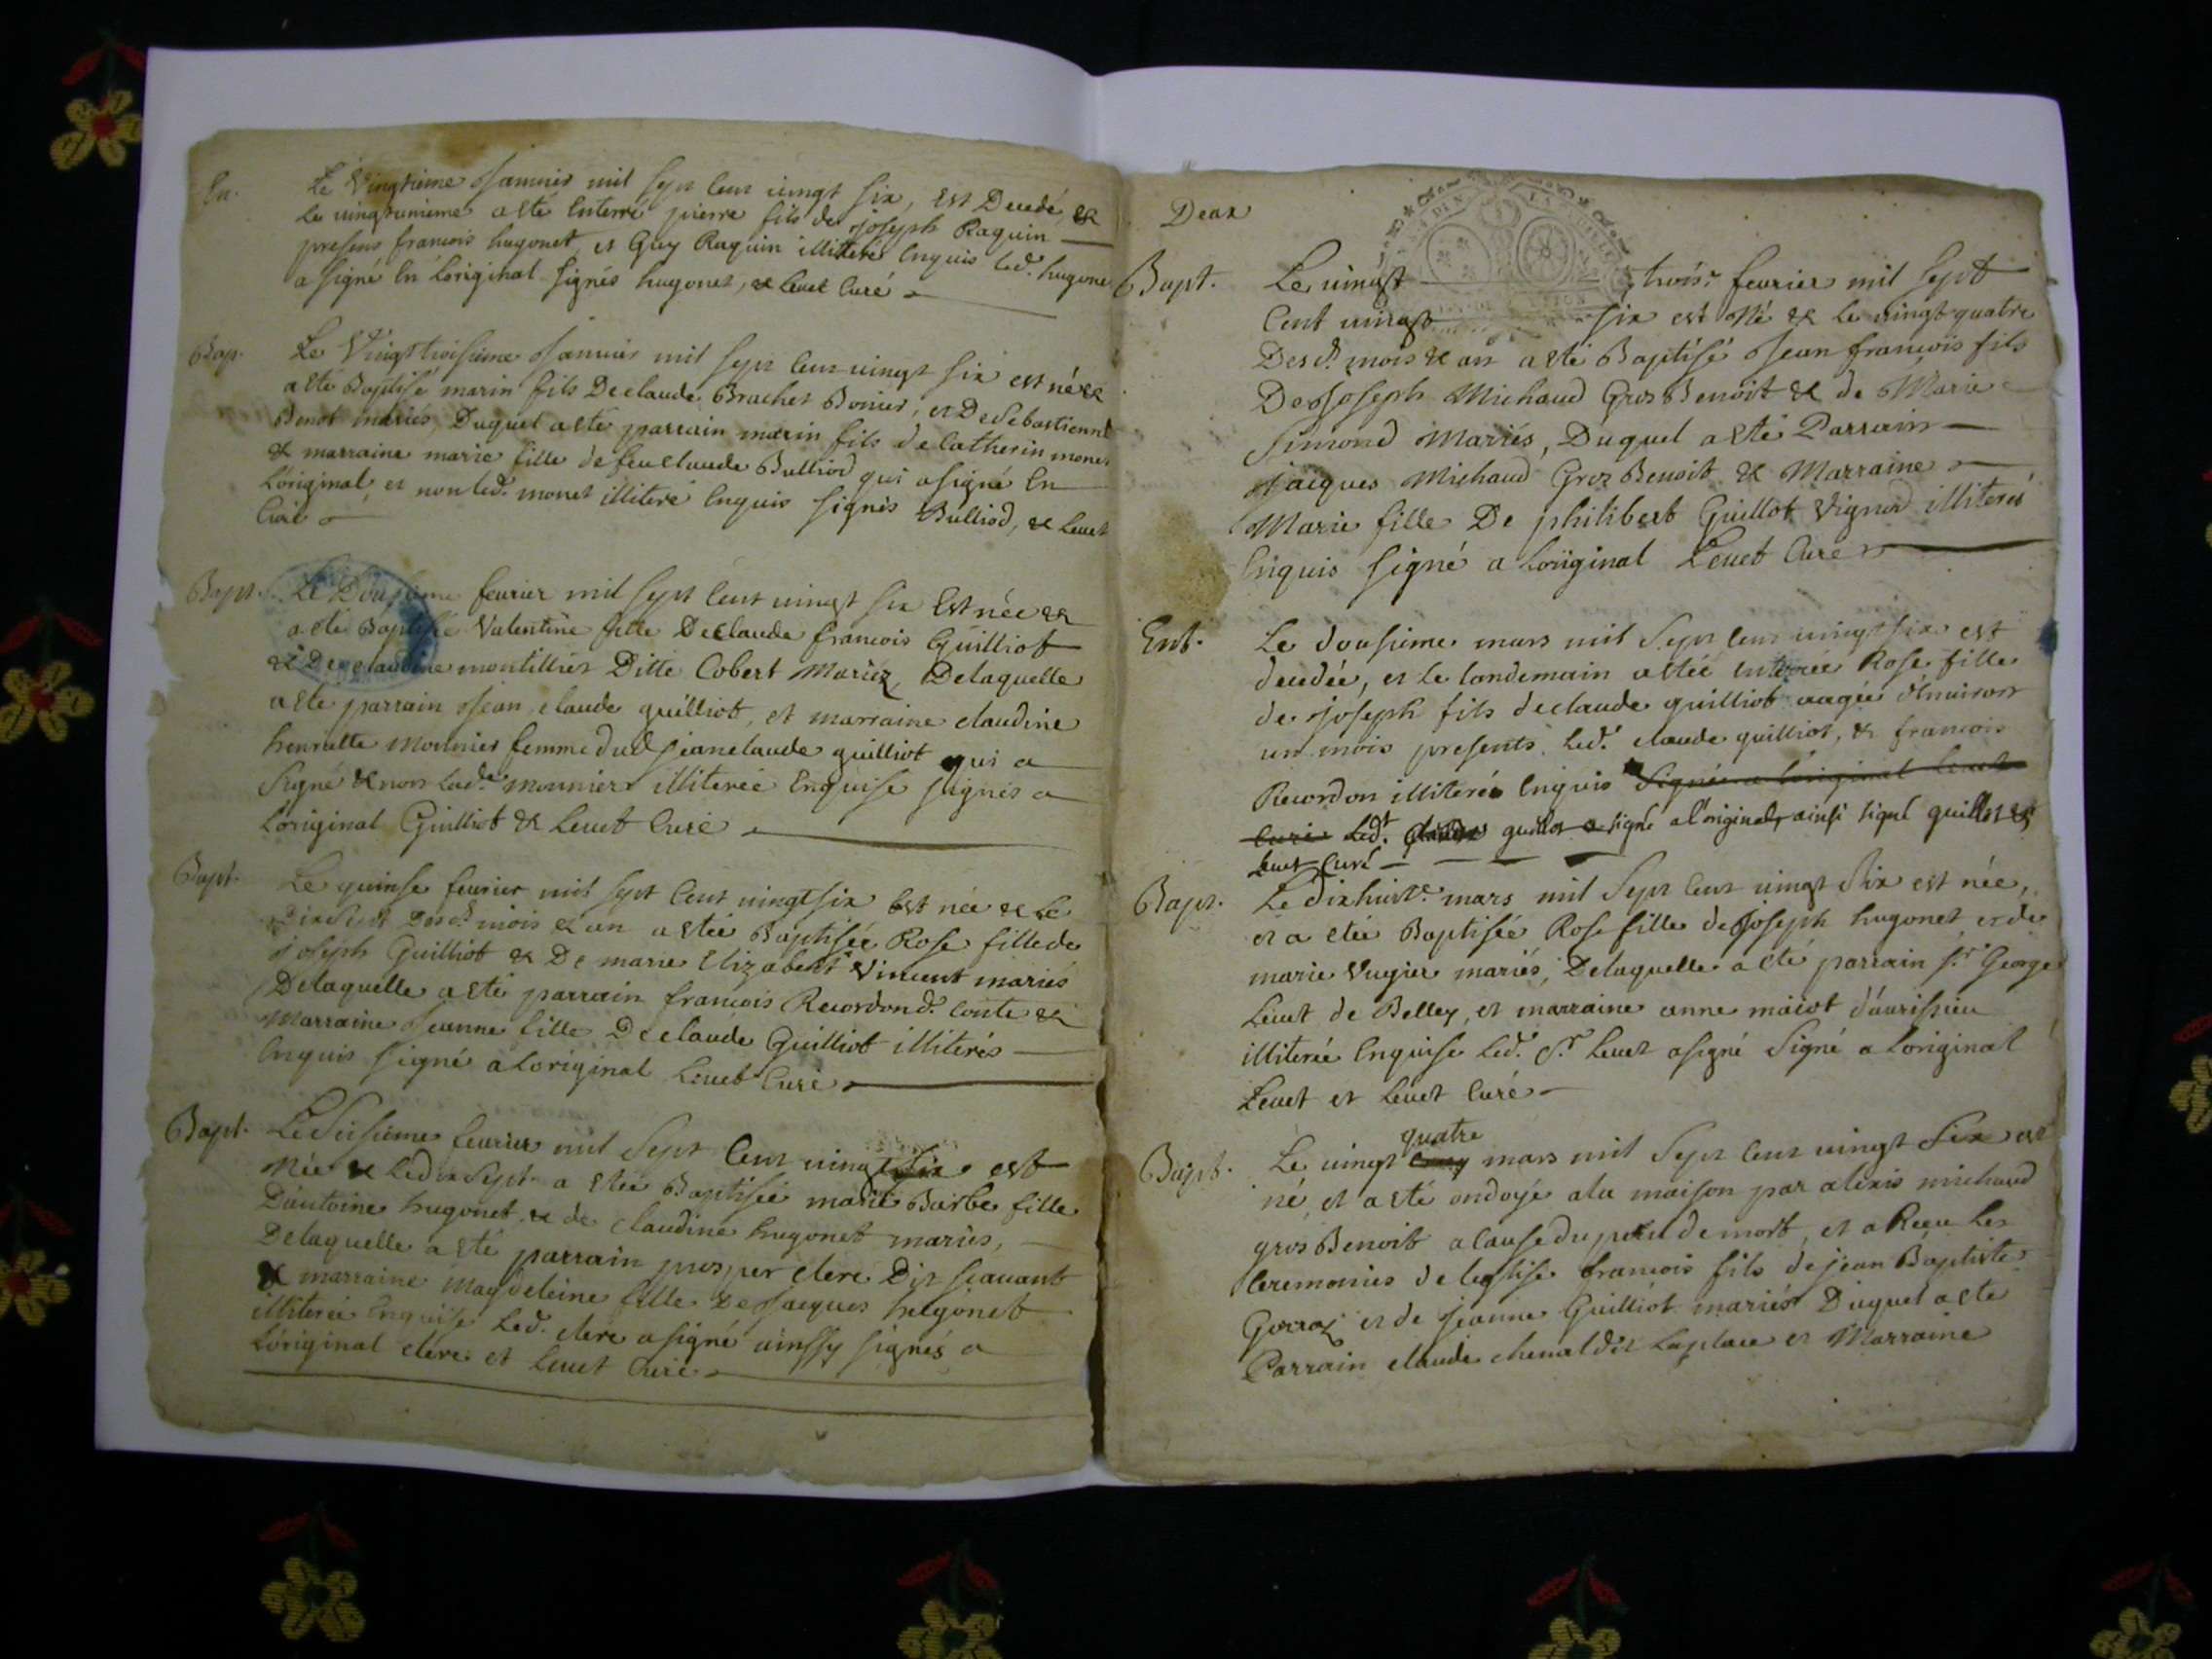 En.
Le Vingtieme Janvier mil sept cent vingt six, est Decedé &
le vingtunieme a esté Enterré pierre fils de joseph Raquin
presens francois hugonet, et Guy Raquin illiteré Enquis led. hugone
a signé En Loriginal signés hugonet, & Levet Curé
Bap.
Le Vingttroisieme Janvier mil sept cent vingt six est né &
a esté Baptisé marin fils De claude Brachet Bonier, et De Sebastienne
Benot mariés, Duquel a esté parrain marin fils de Catherin monet
& marraine marie fille de feu claude Bulliod qui a signé En
Loriginal, et non led. monet illiteré Enquis signés Bulliod, & Levet
Curé
Bapt.
Le Dousieme fevrier mil sept cent vingt six Est née &
a esté Baptisée Valentine fille De claude francois Guilliot
& De claudine montillier Ditte Cobert Mariez, Delaquelle
a esté parrain Jean claude guilliot, et marraine claudine
henriette Mounier femme dud jeanclaude guilliot qui a
Signé & non lade mounier illiterée Enquise signés a
Loriginal Guilliot & Levet Curé
Bapt.
Le quinse fevrier mil sept Cent vingtsix Est née & Le
Dixsept Desd. mois & an a estée Baptisée Rose fille de
Joseph Guilliot & De marie Elizabeth Vincent mariés
Delaquelle a esté parrain francois Recordon d. Conte &
Marraine Jeanne fille De claude Guilliot illiterés
Enquis signé a Loriginal Levet Curé
Bapt.
Le Seisieme fevrier mil Sept Cent vingt Six est
Née & Ledixsept a estée Baptisée marie Barbe fille
Dantoine hugonet & de Claudine hugonet mariés,
Delaquelle a esté parrain prosper clere Dit scavant
& marraine Magdeleine fille De Jacques hugonet
illiterée Enquise Led. clere a signé ainssy signés a
Loriginal clere et Levet Curé
Deux
Bapt.
Le vingt trois.e fevrier mil sept
Cent vingt six est Né & le vingt quatre
Desd. mois & an a esté Baptisé Jean francois fils
De Joseph Michaud Gros Benoit & de Marie
Simond Mariés, Duquel a esté Parrain
Jacques Michaud Groz Benoit & Marraine
Marie fille De philibert Guillot Vignod illiterés
Enquis signé a Loriginal Levet Curé
Ent.
Le dousieme mars mil Sept cent vingt six est
decedée, et Le landemain a estée enterrée Rose fille
de joseph fils declaude guilliot aagée d'Environ
un mois presents Led. claude guilliot, & francois
Recordon illiterés Enquis Signée a Loriginal Levet
Curé led.t guillot a signé a l'original, ainsi signé guillot &
Levet Curé
Bapt.
Le dixhuit.e mars mil Sept Cent vingt Six est née,
et a estée Baptisée Rose fille de joseph hugonet et de
marie Vugier mariés, Delaquelle a esté parrain S.r George
Levet de Belley, et marraine anne maiot d'aurissieu
illiterée Enquise Led. S.r Levet a signé Signé a Loriginal
Levet et Levet Curé
Bapt.
quatre
Le vingt cinq mars mil Sept Cent vingt Six est
né, et a esté ondoyé a la maison par alexis michaud
gros Benoit a Cause du peril de mort, et a Receu Les
Ceremonies de leglise francois fils de jean Baptiste
Gorraz et de jeanne Guilliot mariés Duquel a esté
Parrain claude chenal dit Laplace et Marraine